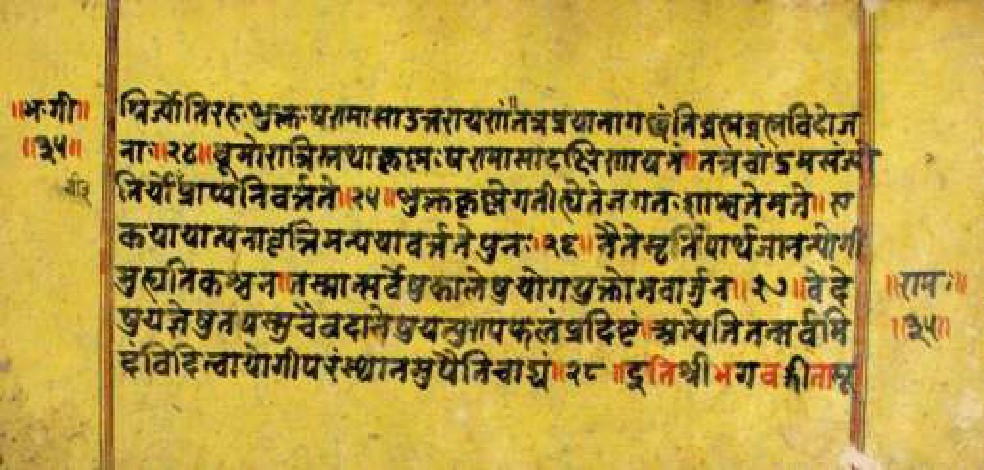 ॥भ.गी॥
॥३५॥
ग्निर्ज्योतिरहःशुक्लःषण्मासाउत्तरायणं॥तत्रप्रयातागछंतिब्रह्मब्रह्मविदोज
नाः॥२४॥धूमोरात्रिस्तथाकृष्णःषण्मासादक्षिणायनं॥तत्रचांद्रमसंज्यो
तिर्योगीप्राप्यनिवर्त्तते॥२५॥शुक्लकृष्णेगतीह्येतेजगतःशाश्वतेमते॥ए
कयायात्यनावृत्तिमन्ययावर्त्ततेपुनः॥२६॥नैतेसृतीपार्थजानन्योगी
मुह्यतिकश्चन॥तस्मात्सर्वेषुकालेषुयोगयुक्तोभवार्जुन॥२७॥वेदे
षुयज्ञेषुतपस्सुचैवदानेषुयत्पुण्यफलंप्रदिष्टं॥अत्येतितत्सर्वमि
दंविदित्वायोगीपरंस्थानमुपैतिचाद्यं॥२८॥इतिश्रीभगवद्गीतासू
॥रामः॥
॥३५॥